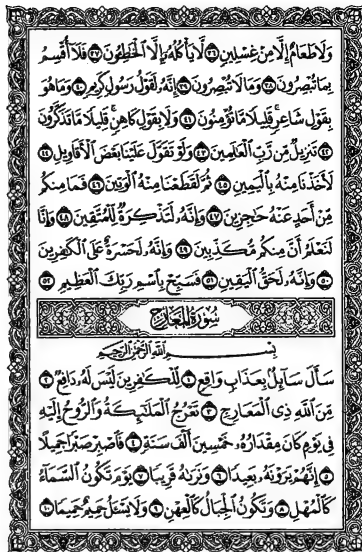 وَلَا طَعَامٌ إِلَّا مِنْ غِسْلِينٍ ٣٦ لَّا يَأْكُلُهُۥٓ إِلَّا ٱلْخَٰطِـُٔونَ ٣٧ فَلَآ أُقْسِمُ
بِمَا تُبْصِرُونَ ٣٨ وَمَا لَا تُبْصِرُونَ ٣٩ إِنَّهُۥ لَقَوْلُ رَسُولٍ كَرِيمٍ ٤٠ وَمَا هُوَ
بِقَوْلِ شَاعِرٍ ۚ قَلِيلًا مَّا تُؤْمِنُونَ ٤١ وَلَا بِقَوْلِ كَاهِنٍ ۚ قَلِيلًا مَّا تَذَكَّرُونَ
٤٢ تَنزِيلٌ مِّن رَّبِّ ٱلْعَٰلَمِينَ ٤٣ وَلَوْ تَقَوَّلَ عَلَيْنَا بَعْضَ ٱلْأَقَاوِيلِ ٤٤
لَأَخَذْنَا مِنْهُ بِٱلْيَمِينِ ٤٥ ثُمَّ لَقَطَعْنَا مِنْهُ ٱلْوَتِينَ ٤٦ فَمَا مِنكُم
مِّنْ أَحَدٍ عَنْهُ حَٰجِزِينَ ٤٧ وَإِنَّهُۥ لَتَذْكِرَةٌ لِّلْمُتَّقِينَ ٤٨ وَإِنَّا
لَنَعْلَمُ أَنَّ مِنكُم مُّكَذِّبِينَ ٤٩ وَإِنَّهُۥ لَحَسْرَةٌ عَلَى ٱلْكَٰفِرِينَ
٥٠ وَإِنَّهُۥ لَحَقُّ ٱلْيَقِينِ ٥١ فَسَبِّحْ بِٱسْمِ رَبِّكَ ٱلْعَظِيمِ ٥٢
سُورَةُ المَعَارِجِ
بِسْمِ ٱللَّهِ ٱلرَّحْمَٰنِ ٱلرَّحِيمِ
سَأَلَ سَآئِلٌۢ بِعَذَابٍ وَاقِعٍ ١ لِّلْكَٰفِرِينَ لَيْسَ لَهُۥ دَافِعٌ ٢
مِّنَ ٱللَّهِ ذِى ٱلْمَعَارِجِ ٣ تَعْرُجُ ٱلْمَلَٰٓئِكَةُ وَٱلرُّوحُ إِلَيْهِ
فِى يَوْمٍ كَانَ مِقْدَارُهُۥ خَمْسِينَ أَلْفَ سَنَةٍ ٤ فَٱصْبِرْ صَبْرًا جَمِيلًا
٥ إِنَّهُمْ يَرَوْنَهُۥ بَعِيدًا ٦ وَنَرَىٰهُ قَرِيبًا ٧ يَوْمَ تَكُونُ ٱلسَّمَآءُ
كَٱلْمُهْلِ ٨ وَتَكُونُ ٱلْجِبَالُ كَٱلْعِهْنِ ٩ وَلَا يَسْـَٔلُ حَمِيمٌ حَمِيمًا ١٠